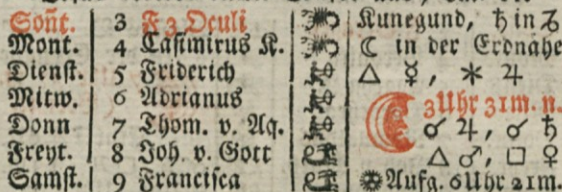 Soñt. 3 F 3 Oculi Kunegund, ♄ in ♑
Mont. 4 Casimirus K. ☾ in der Erdnähe
Dienst. 5 Friderich △ ☿, ⚹ ♃
Mitw. 6 Adrianus 3Uhr 31m. n.
Donn 7 Thom. v. Aq. ☌ ♃, ☌ ♄
Freyt. 8 Joh. v. Gott △ ♂, □ ♀
Samst. 9 Francisca Aufg. 6Uhr 21m.